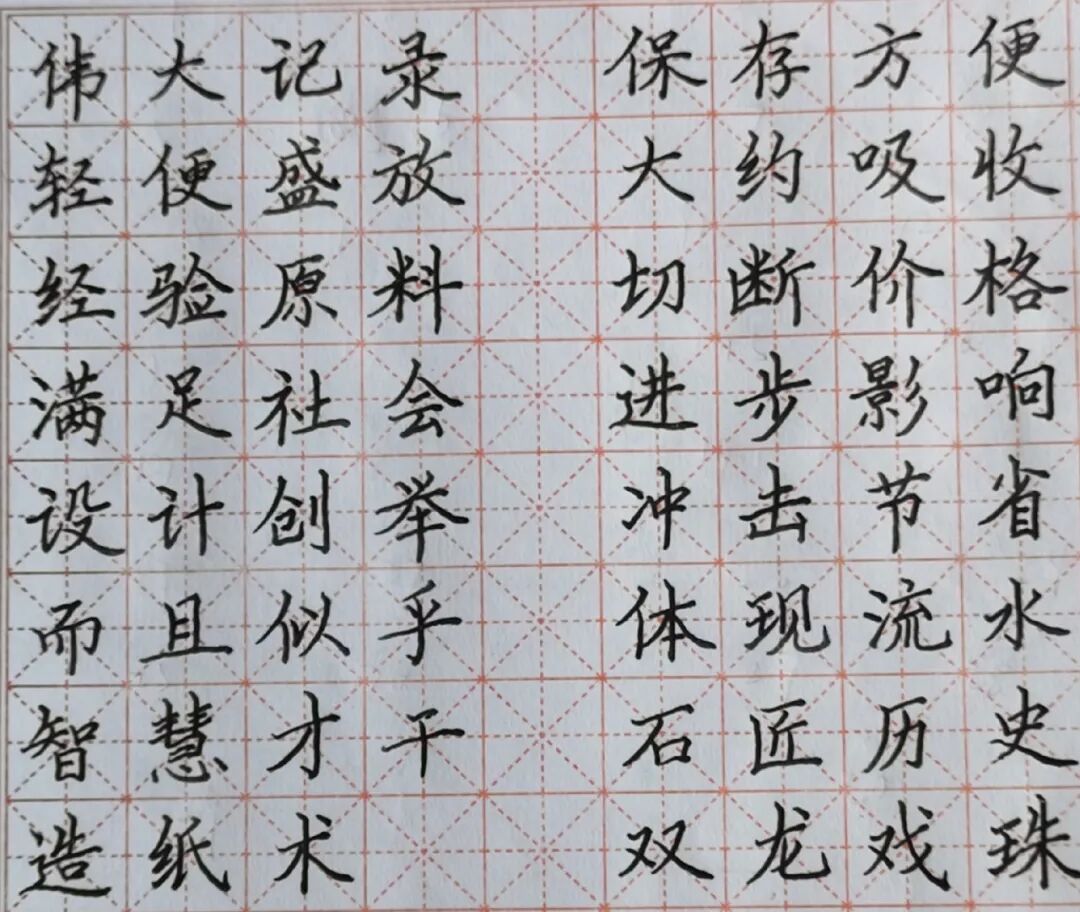 伟大记录 保存方便
轻便盛放 大约吸收
经验原料 切断价格
满足社会 进步影响
设计创举 冲击节省
而且似乎 体现流水
智慧才干 石匠历史
造纸术 双龙戏珠